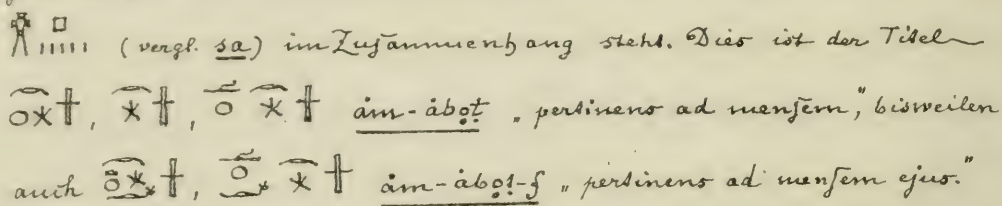 (vergl. sa) im Zusammenhang steht. Dies ist der Titel
åm-åboṭ „pertinens ad mensem“, bisweilen
auch åm-åboṭ-f „pertinens ad mensem ejus.“